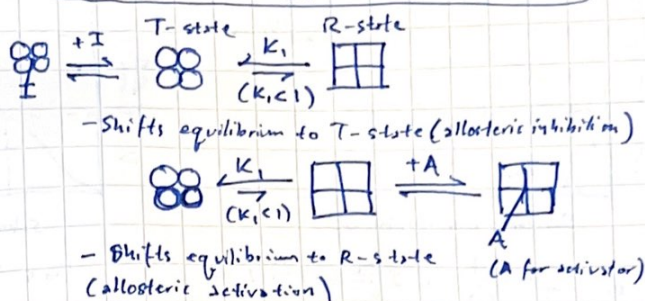 T-state R-state
+I K₁
(K₁<1)
I
- Shifts equilibrium to T-state (allosteric inhibition)
K₁ +A
(K₁<1)
A
- Shifts equilibrium to R-state (A for activator)
(allosteric activation)